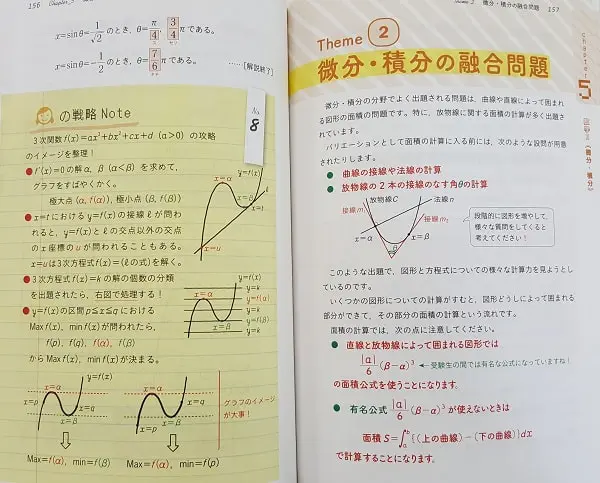 156 Chapter 5
x=sinθ=1/√2 のとき, θ=π/4, 3/4 πである。
x=sinθ=-1/2 のとき, θ=7/6 πである。 ……[解説終了]
の戦略 Note
No. 8
3次関数 f(x)=ax³+bx²+cx+d (a>0) の攻略
のイメージを整理!
● f'(x)=0の解α, β (α<β) を求めて,
グラフをすばやくかく。
極大点 (α, f(α)), 極小点 (β, f(β))
● x=tにおける y=f(x)の接線ℓが問わ
れると, y=f(x)とℓの交点以外の交点
のx座標のuが問われることもある。
x=uは3次方程式f(x)=(ℓの式)を解く。
y=f(x)
x=α
x=β
x=t
x=u
● 3次方程式f(x)=kの解の個数の分類
を出題されたら, 右図で処理する!
y=f(x)
y=k
y=f(α)
y=k
y=f(β)
y=k
x=α
x=β
● y=f(x)の区間p≦x≦qにおける
Max f(x), min f(x)が問われたら,
f(p), f(q), f(α), f(β)
からMax f(x), min f(x)が決まる。
x=α
y=f(x)
x=p
x=q
x=β
Max=f(α), min=f(β)
x=α
x=q
x=p
x=β
Max=f(α), min=f(p)
グラフのイメージ
が大事!
微分・積分の融合問題 157
Theme 2
微分・積分の融合問題
chapter
5
《微分・積分》
微分・積分の分野でよく出題される問題は, 曲線や直線によって囲まれ
る図形の面積の問題です。特に, 放物線に関する面積の計算が多く出題さ
れています。
バリエーションとして面積の計算に入る前には, 次のような設問が用意
されたりします。
● 曲線の接線や法線の計算
● 放物線の2本の接線のなす角θの計算
放物線C
法線n
接線m₁
接線m₂
x=α
x=β
θ
段階的に図形を増やして,
様々な質問をしてくると
考えてください!
このような出題で, 図形と方程式についての様々な計算力を見ようとし
ているのです。
いくつかの図形についての計算がすむと, 図形どうしによって囲まれる
部分ができて, その部分の面積の計算という流れです。
面積の計算では, 次の点に注意してください。
● 直線と放物線によって囲まれる図形では
|a|/6 (β-α)³ ←受験生の間では有名な公式になっていますね!
の面積公式を使うことになります。
● 有名公式 |a|/6 (β-α)³ が使えないときは
面積 S=∫ₐᵇ{(上の曲線)-(下の曲線)}dx
で計算することになります。